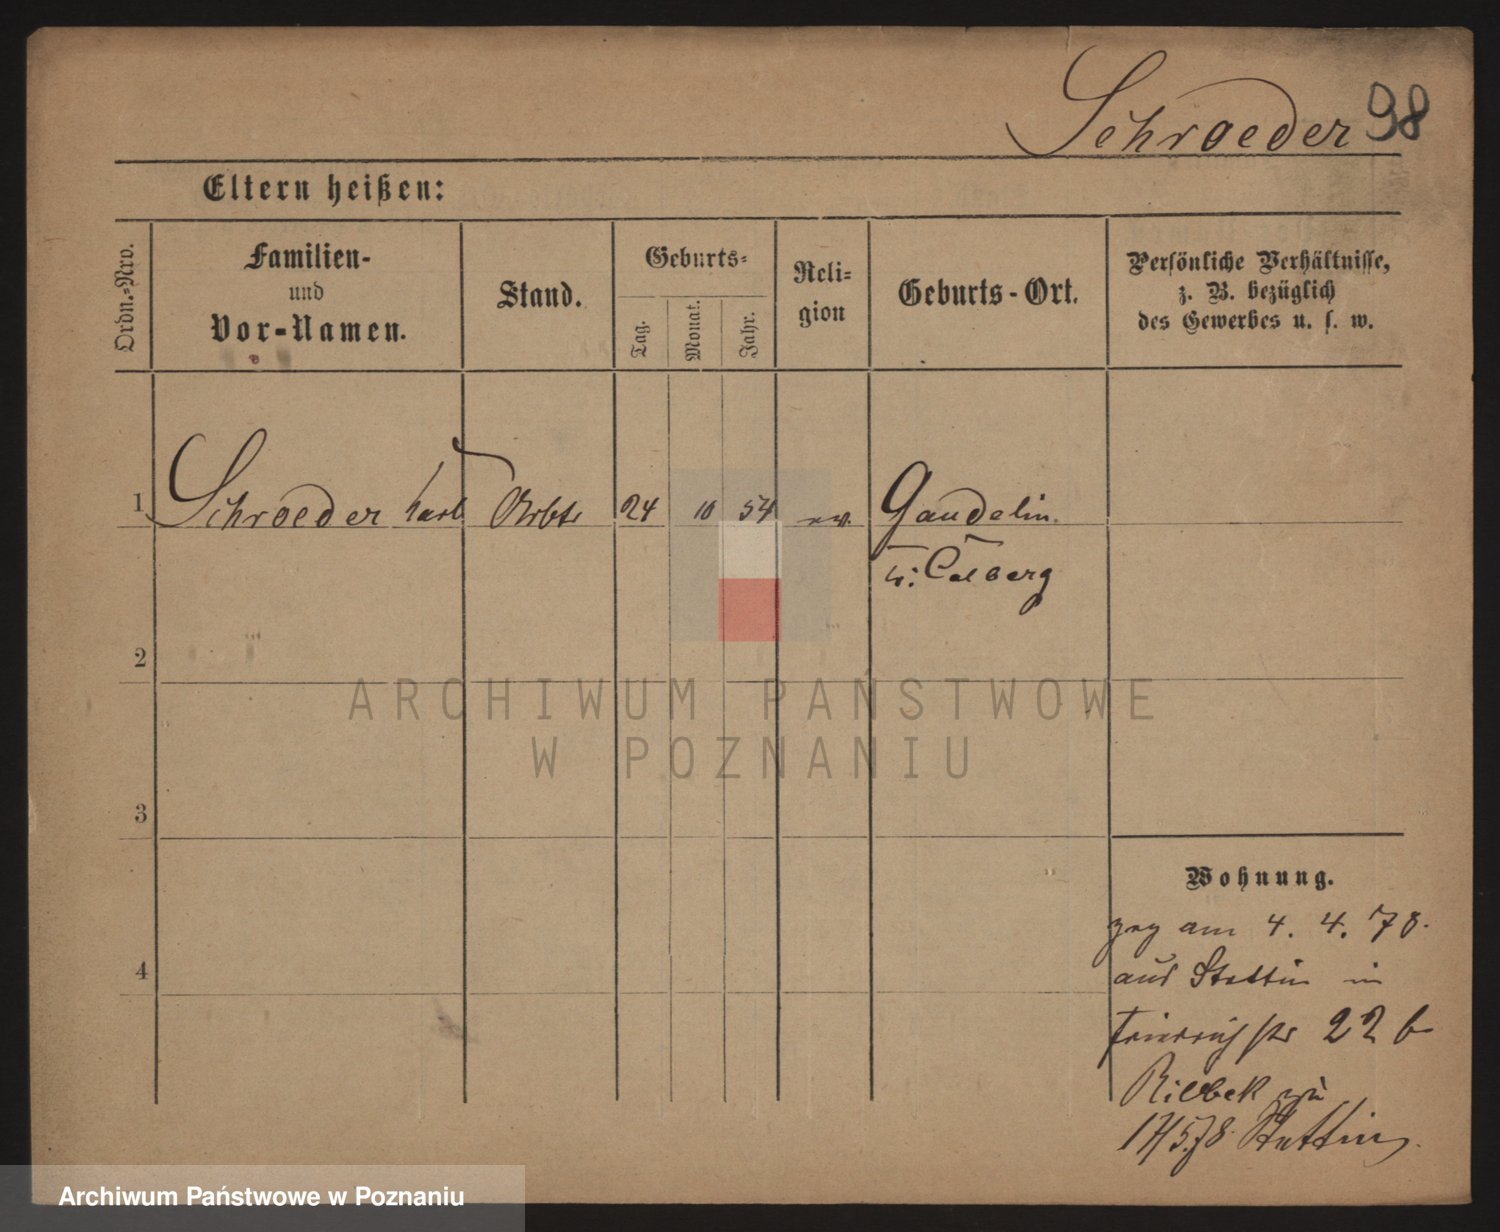 Schroeder 98
Eltern heißen:
Ordn.-Nro.
Familien-
und
Vor-Namen.
Stand.
Geburts-
Tag.
Monat.
Jahr.
Reli-
gion
Geburts-Ort.
Persönliche Verhältnisse,
z. B. bezüglich
des Gewerbes u. s. w.
1 Schroeder Karl Arbtr 24 10 54 ev. Gandelin
Colberg
2
3
4
Wohnung.
am 4. 4. 78.
aus Stettin in
Friedrichstr 22 b
17/5.78 Stettin
ARCHIWUM PAŃSTWOWE
W POZNANIU
Archiwum Państwowe w Poznaniu